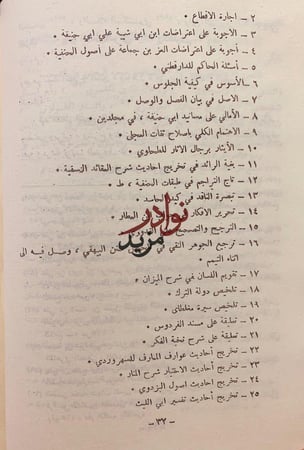 ٢ ـ اجارة الاقطاع ٠
٣ ـ الاجوبة على اعتراضات ابن ابي شيبة على ابي حنيفة ٠
٤ ـ أجوبة على اعتراضات العز بن جماعة على أصول الحنفية ٠
٥ ـ أسئلة الحاكم للدارقطني ٠
٦ ـ الأسوس في كيفية الجلوس ٠
٧ ـ الاصل في بيان الفصل والوصل ٠
٨ ـ الأمالي على مسانيد ابي حنيفة ، في مجلدين ٠
٩ ـ الاهتمام الكلي باصلاح ثقات العجلي ٠
١٠ ـ الأيثار برجال الاثار للطحاوي ٠
١١ ـ بغية الرائد في تخريج احاديث شرح العقائد النسفية ٠
١٢ ـ تاج التراجم في طبقات الحنفية ، ط ٠
١٣ ـ تبصرة الناقد في كيد الحاسد ٠
١٤ ـ تحرير الافكار العطار ٠
١٥ ـ الترجيح والتصحيح القدوري ٠
١٦ ـ ترجيع الجوهر النقي في البيهقي ، وصل فيه الى
اثناء التيمم ٠
١٧ ـ تقويم اللسان في شرح الميزان ٠
١٨ ـ تلخيص دولة الترك ٠
١٩ ـ تلخيص سيرة مغلطاى ٠
٢٠ ـ تعليقة على مسند الفردوس ٠
٢١ ـ تعليقة على شرح نخبة الفكر ٠
٢٢ ـ تخريج أحاديث عوارف المعارف للسهروردي ٠
٢٣ ـ تخريج أحاديث الاختيار شرح المختار ٠
٢٤ ـ تخريج احاديث اصول البزدوي ٠
٢٥ ـ تخريج احاديث تفسير ابي الليث
ـ ٣٧ ـ
نوادر
مزيد